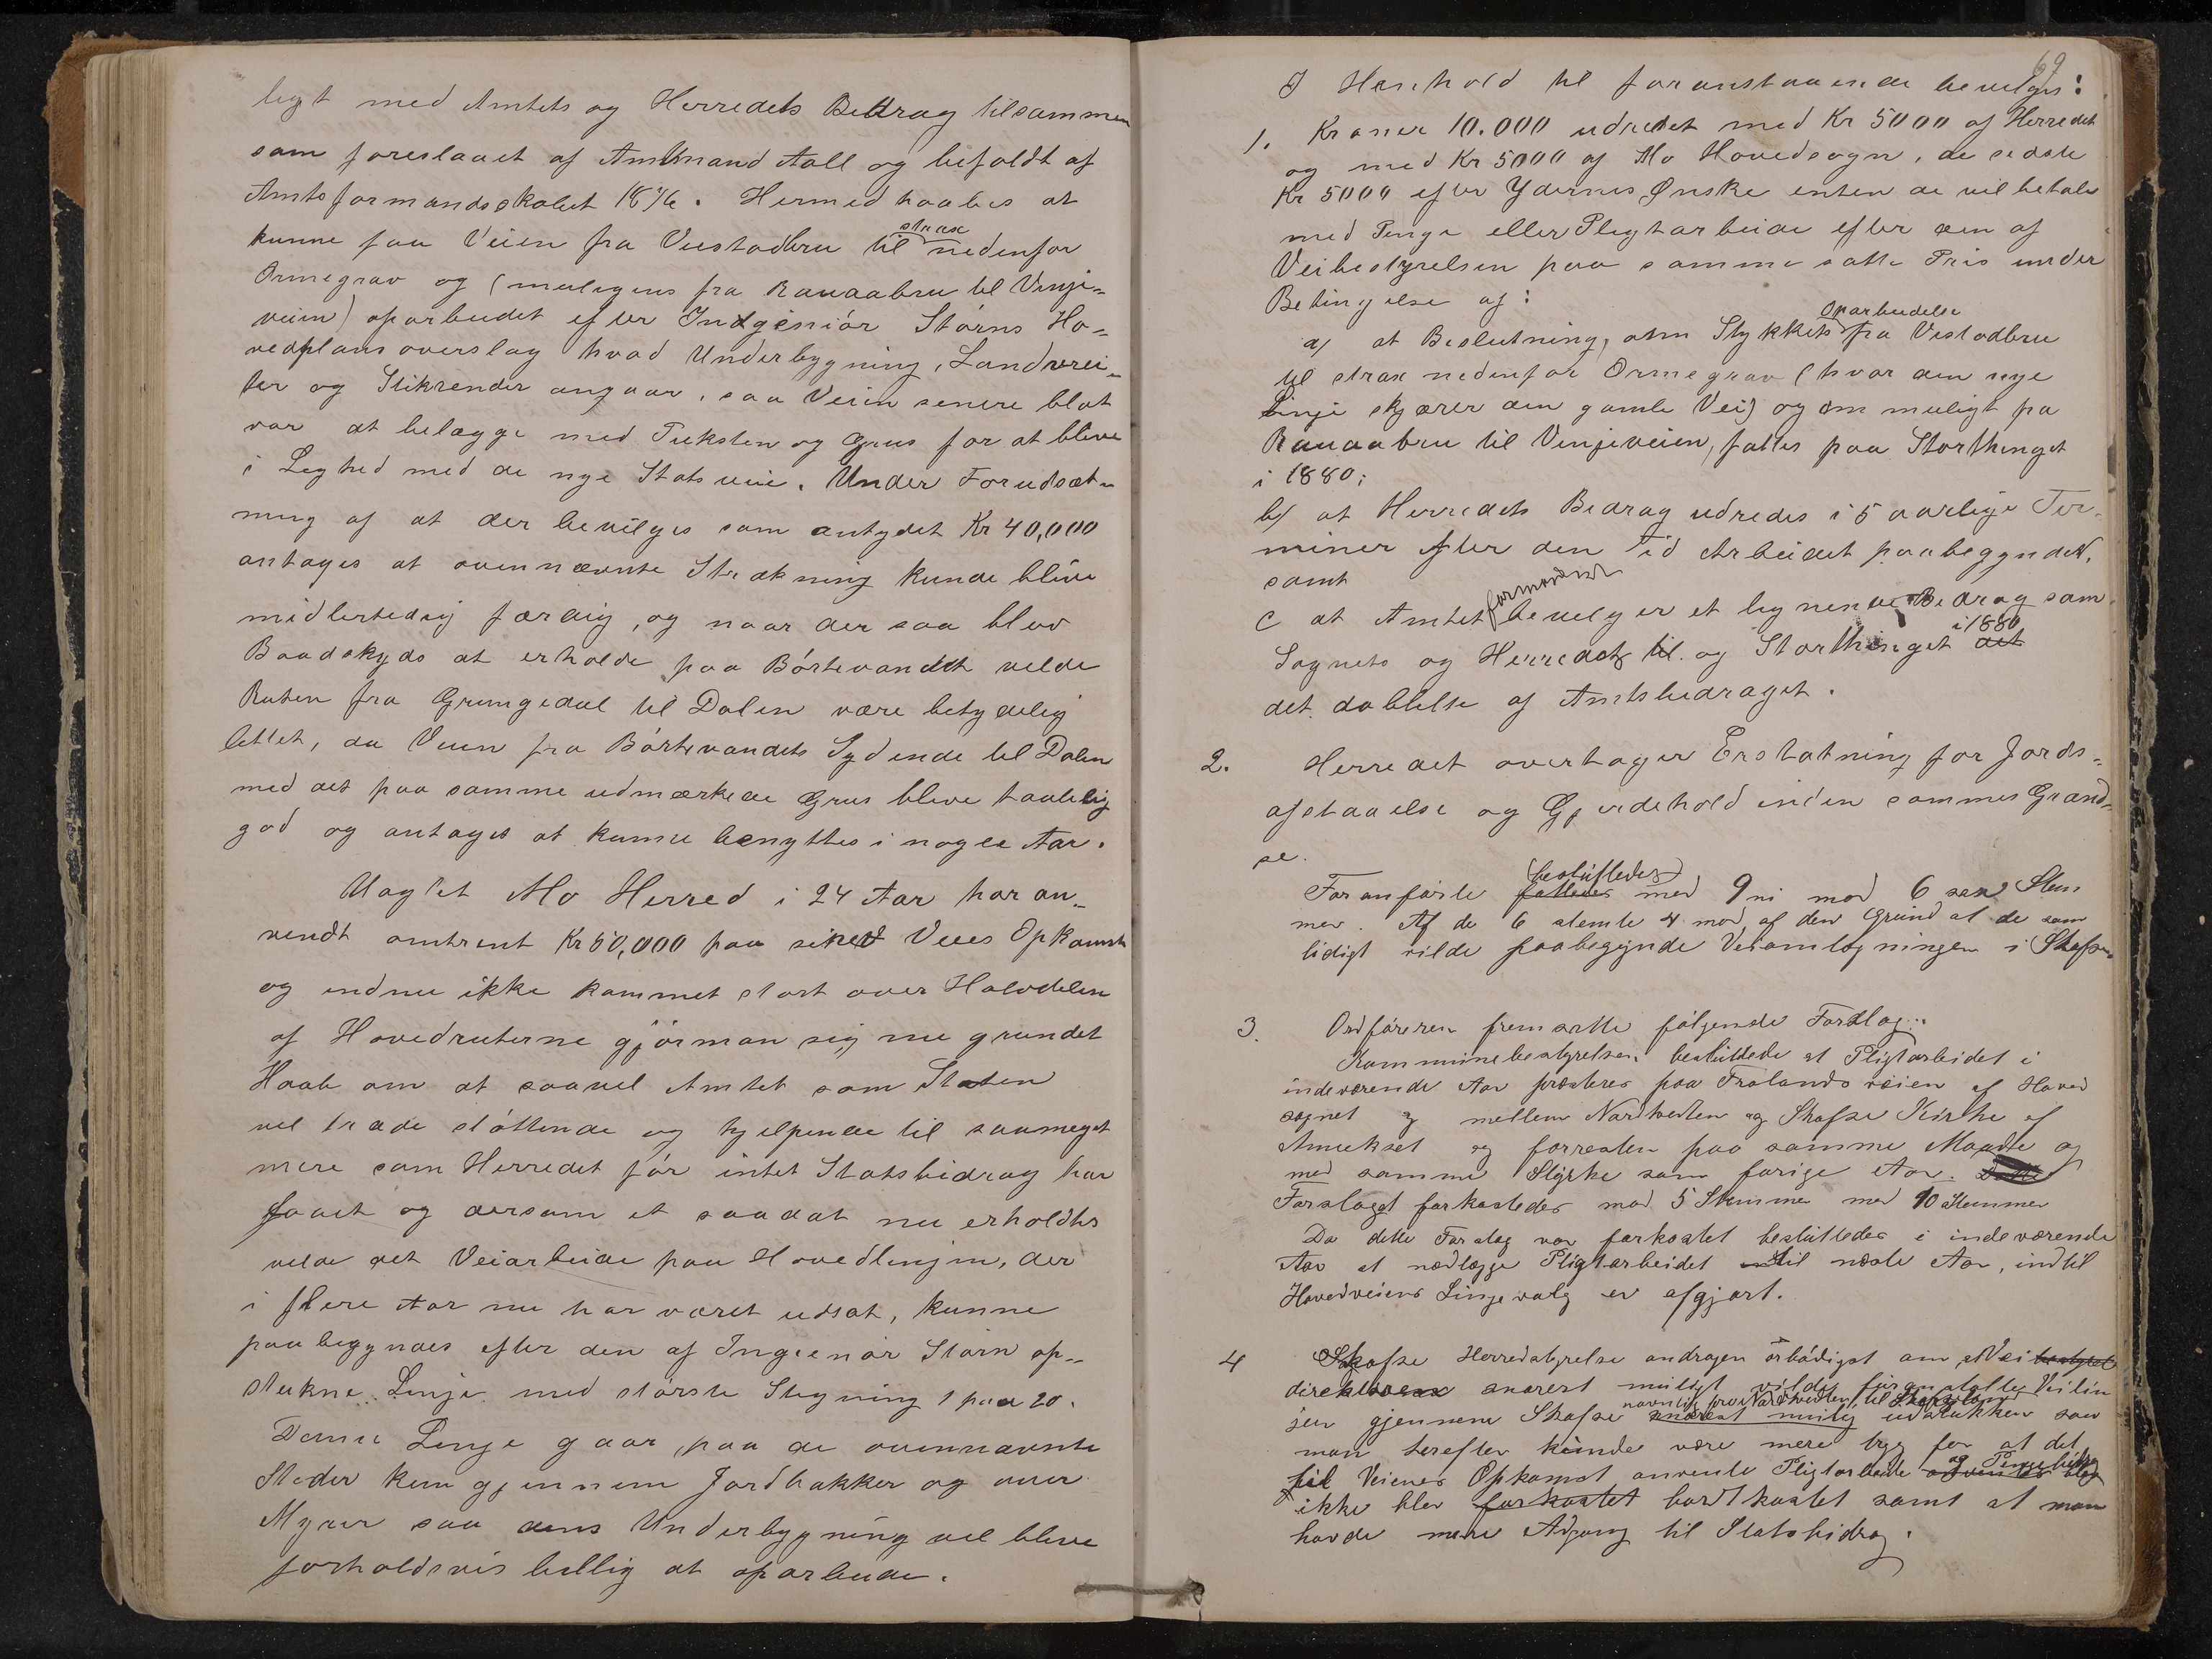 ligt med Amtets og Herredets Bidrag tilsammen
som foreslaaet af Amtmand Aall og befaldt af
Amtsformandsskabet. Hermed haabes at
kunne faa Veien fra Vestadbru til strax nedenfor
Ormegrav og (muligens fra Rauaabru til Vinje-
veien) oparbeidet efter Ingeniór Stórns Ho-
vedplans overslag hvad Underbygning, Landvei-
ter og Stikrender angaar, saa Veien senere blot
var at belægge med Puksten og Grus for at blive
i Lighed med de nye Statsveie. Under Forudsæt-
ning af at der bevilges som antydet Kr 40,000
antages at ovennævnte Strækning kunde blive
midlertidig færdig, og naar der saa blev
Baadskyds at erholde paa Bórtevandet vilde
Ruten fra Grungedal til Dalen være betydelig
lettet, da Veien fra Bórtevandets Sydende til Dalen
med det paa samme udmærkede Grus bliver taalelig
god og antages at kunne benyttes i nogle Aar.
Uagtet Mo Herred i 24 Aar har an-
vendt omtrent Kr 50,000 paa sine Veies Opkomst
og endnu ikke kommet stort over Halvdelen
af Hovedruterne gjór man sig nu grundet
Haab om at saavel Amtet som Staten
vil træde stóttende og hjelpende til saameget
mere som Herredet fór intet Statsbidrag har
faaet og dersom et saadat nu erholdtes
vilde det Veiarbeide paa Hovedlinjen, der
i flere Aar nu har været udsat, kunne
paabegyndes efter den af Ingeniór Stórn op-
stukne Linje med stórste Stigning 1 paa 20.
Denne Linje gaar, paa de ovennævnte
Steder kun gjennem Jordbakker og over
Myrer saa dens Underbygning vil blive
forholdsvis billig at oparbeide.
69
I Henhold til foranstaaende bevilges:
1. Kroner 10.000 udredet med Kr 5000 af Herredet
og med Kr 5000 af Mo Hovedsogn, de sidste
Kr 5000 efter Ydernes Ønske enten de vil betale
med Penge eller Pligtarbeide efter den af
Veibestyrelsen paa samme satte Pris under
Betingelse af:
a) at Beslutning, om Stykkets Oparbeidelse fra Vestadbru
til strax nedenfor Ormegrav (hvor den nye
Linje skjærer den gamle Vei) og om muligt fra
Rauaabru til Vinjeveien, fattes paa Storthinget
i 1880;
b) at Herredets Bedrag udredes i 5 aarlige Ter-
miner efter den Tid Arbeidet paabegyndes,
samt
c at Amtet bevilger et lignende Bedrag som
Sognets og Herredets til. og Storthinget i 1880 det
det dobbelte af Amtsbedraget.
2. Herredet overtager Erstatning for Jords-
afstaaelse og Gjerdehold inden sammes Grænd-
se.
Foranfórte fattedes (beslúttedes) med 9 ni mod 6 sex Stem
mer. Af de 6 stemte 4 mod af den Grúnd at de sam
tidigt vilde paabegynde Veiomlægningen i Skafse
3. Ordfóreren fremsatte fólgende Forslag:
Kommúnebestyrelsen beslúttede at Pligtarbeidet i
indeværende Aar præsteres paa Frolandsveien af Hoved
sognet og mellem Nordtvedten og Skafse Kirke af
Annekset og forresten paa samme Maade og
med samme Styrke som forige Aar.
Forslaget forkastedes med 5 Stemmer mod 10 Stemmer
Da dette Forslag var forkastet beslúttedes i indeværende
Aar at nedlægge Pligtarbeidet til næste Aar, indtil
Hovedveiens Linjevalg er afgjort.
4 Skafse Herredstyrelse andrager ærbódigst om, at Vei bestyrel
direktoren snarest múligt vilde foranstalte Veilin
jen gjennem Skafse snarest mulig navnlig fra Nordtvedten til udstukken saa
man derefter kúnde være mere tryg for at det
til Veienes Opkomst anvendte Pligtarbeide og Pengebidrag
ikke blev forkastet bortkastet samt at man
havde mere Adgang til Statsbidrag.